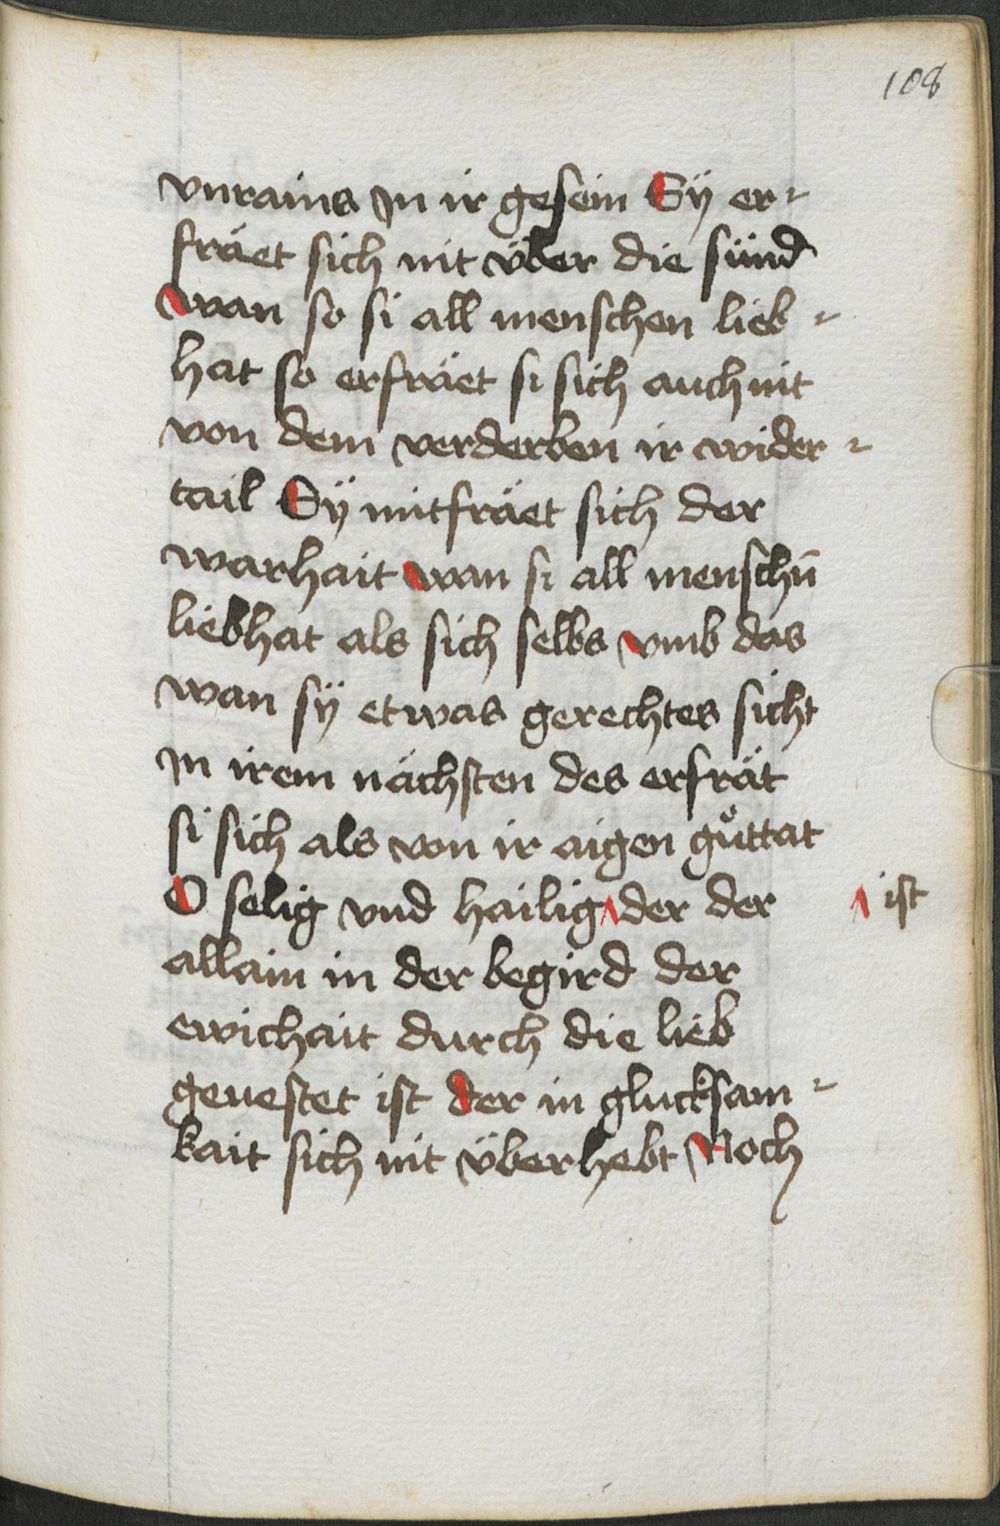 108
vnrains in ir gesein Sÿ er-
fräet sich nit über die sünd
wan so si all menschen lieb-
hat so erfräet si sich auch nit
von dem verderben ir wider-
tail Sÿ mitfräet sich der
warhait wan si all menschn̄
liebhat als sich selbs vmb das
wan sÿ etwas gerechtes sicht
in irem nächsten des erfrät
si sich als von ir aigen gůttat
O selig vnd hailig ∧ der der ∧ ist
allain in der begird der
ewichait durch die lieb
geuestet ist der in glucksam-
kait sich nit überhebt Noch